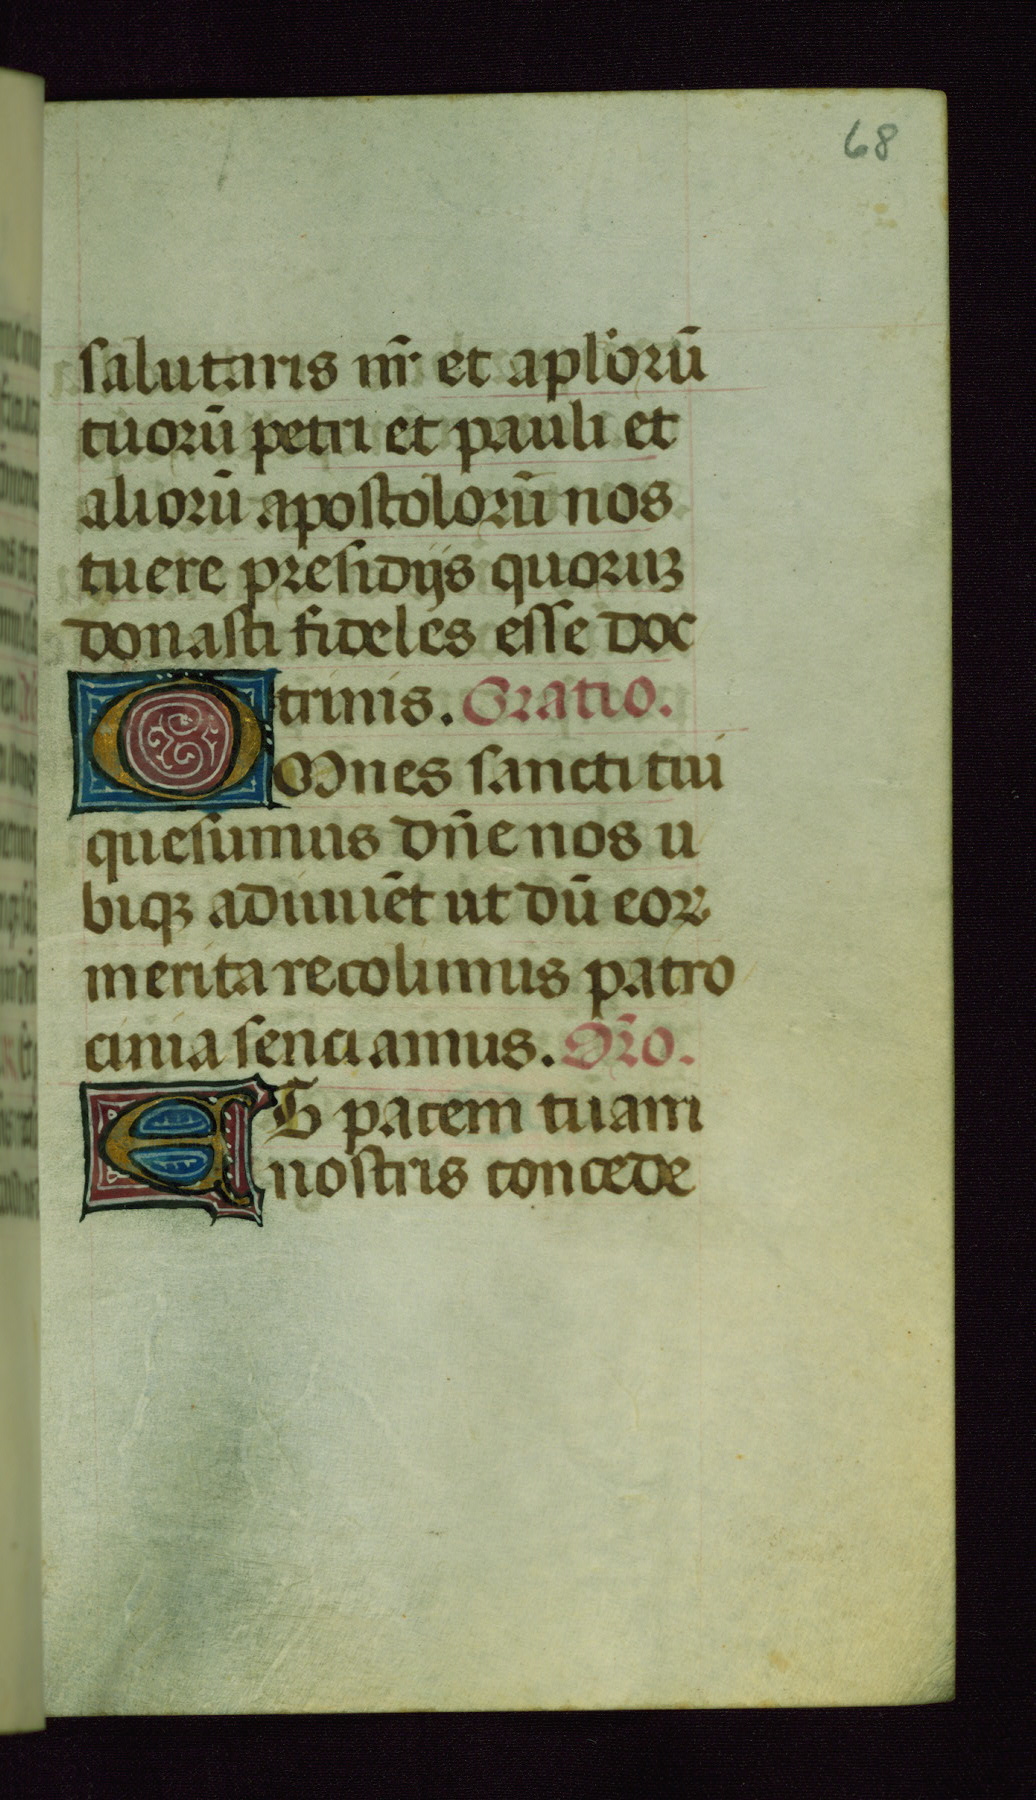 68
salutaris nr̄ et apl'orū
tuorū petri et pauli et
aliorū apostolorū nos
tuere presidijs quoruꝫ
donasti fideles esse doc
trinis. Oratio.
OMnes sancti tui
quesumus dn̄e nos u
biqꝫ adiuuēt ut dū eoꝝ
merita recolimus patro
cinia senciamus. Or̄o.
ET pacem tuam
nostris concede